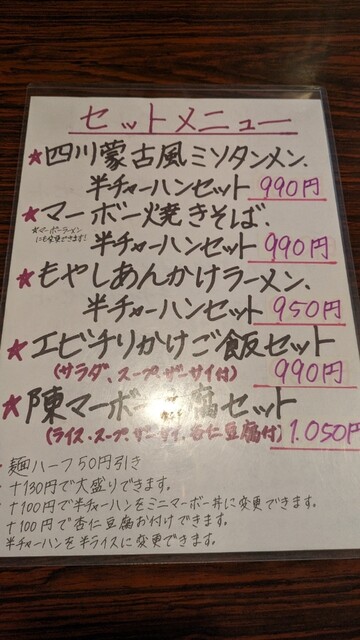 セットメニュー
★四川蒙古風ミソタンメン、
半チャーハンセット 990円
★マーボー焼きそば、
※マーボーラーメン
にも変更できます!
半チャーハンセット 990円
★もやしあんかけラーメン、
半チャーハンセット 950円
★エビチリかけご飯セット
(サラダ、スープ、ザーサイ付) 990円
★陳マーボー 腐セット
(ライス、スープ、ザーサイ、杏仁豆腐付) 1.050円
・麺ハーフ50円引き
・+130円で大盛りできます。
・+100円で半チャーハンをミニマーボー丼に変更できます。
・+100円で杏仁豆腐お付けできます。
半チャーハンを半ライスに変更できます。